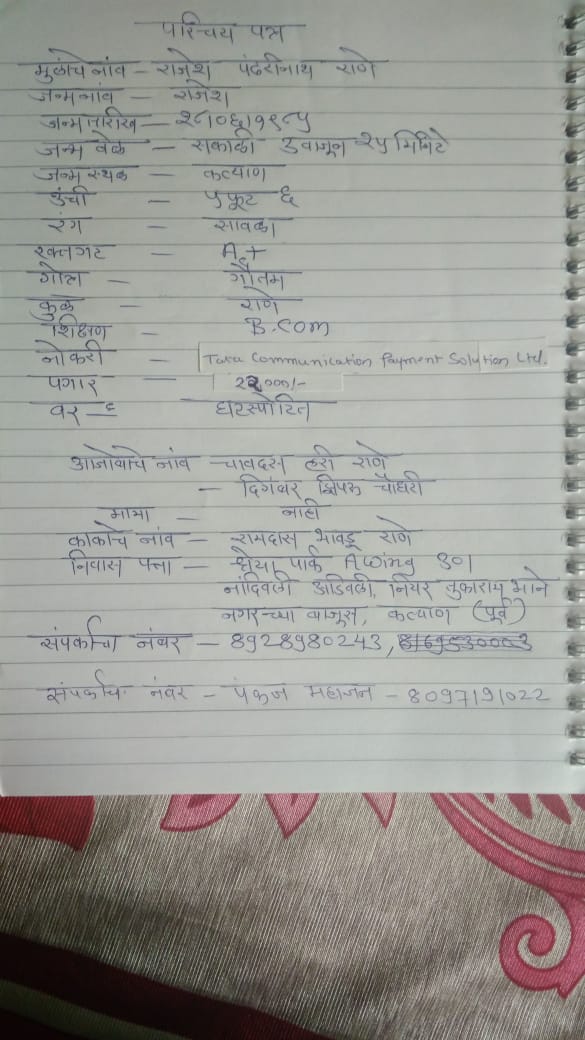 परिचय पत्र
मुलांचे नांव – राजेश पंढरीनाथ राणे
जन्मनांव – राजेश
जन्मतारीख – २८।०६।१९८५
जन्म वेळ – सकाळी ३ वाजून २५ मिनिटे
जन्म स्थळ – कल्याण
उंची – ५ फूट ६
रंग – सावळा
रक्तगट – A+
गोत्र – गौतम
कुळ – राणे
शिक्षण – B.com
नोकरी – Tata Communication Payment Solution Ltd.
पगार – 22000/-
वर – घटस्पोटित
आजोबाचे नांव – चावदस हरी राणे
– दिगंबर चौधरी
मामा – नाही
काकांचे नांव – रामदास भावडू राणे
निवास पत्ता – श्रेया पार्क A wing 301
नांदिवली आडिवली, नियर तुकाराम माने
नगरच्या बाजुस, कल्याण (पूर्व)
संपर्काचा नंबर – 8928980243,
संपर्काचा नंबर – पंकज महाजन – 8097191022